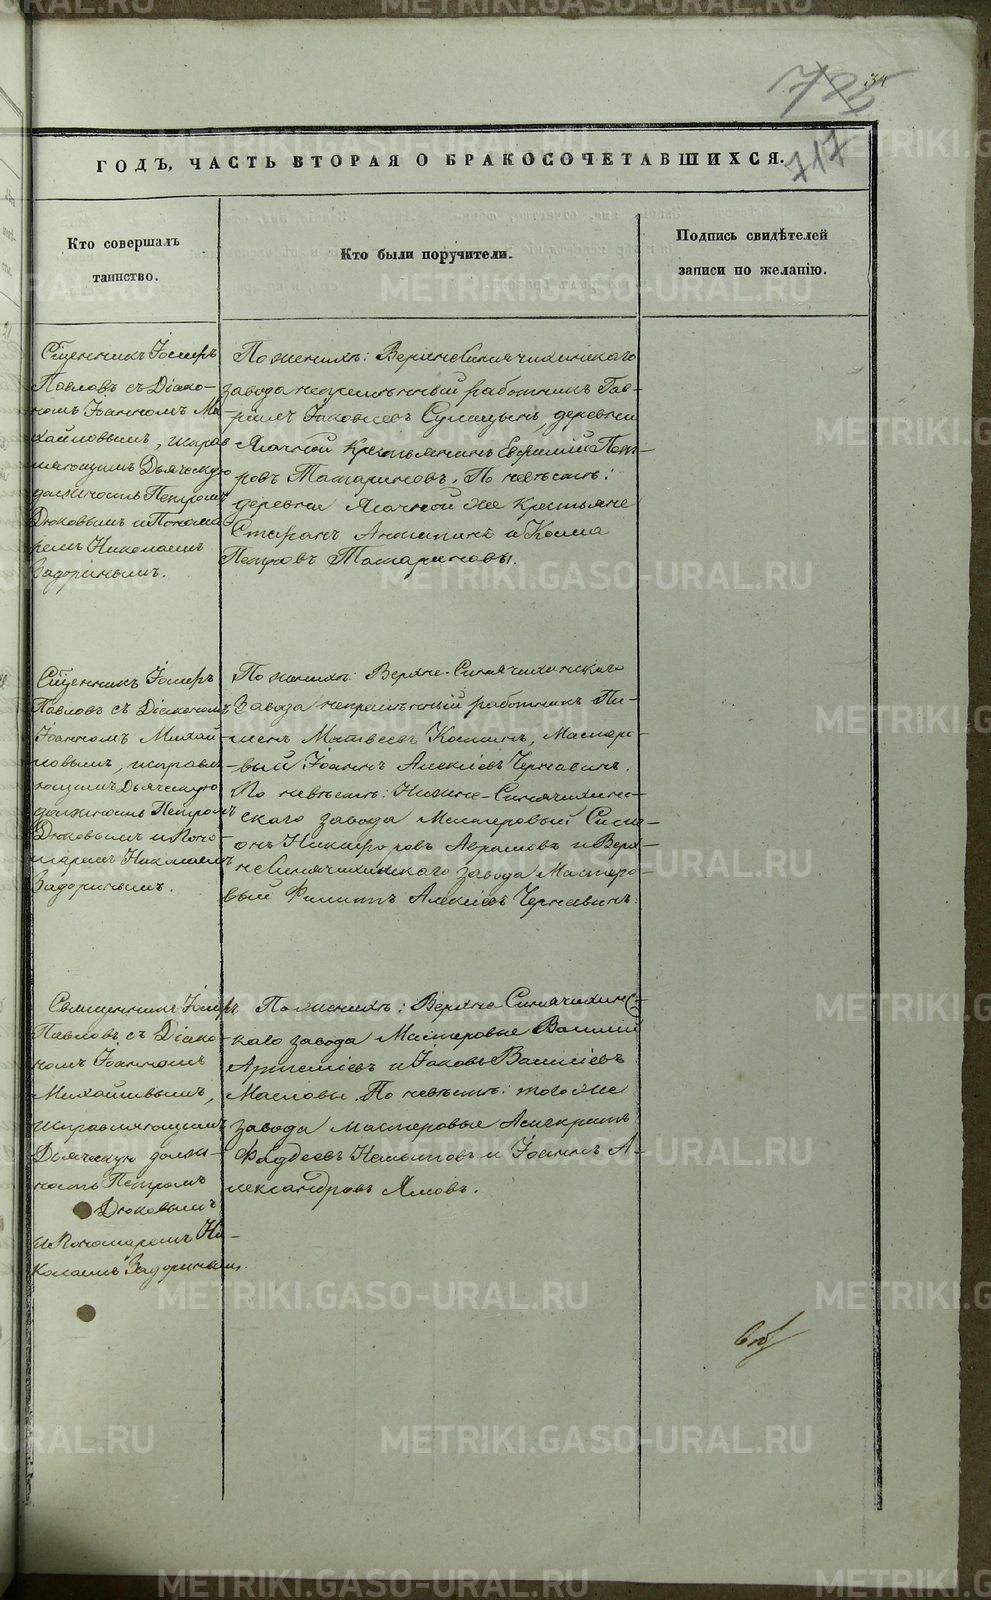 34
725
717
ГОДЪ, ЧАСТЬ ВТОРАЯ О БРАКОСОЧЕТАВШИХСЯ.
Кто совершалъ
таинство.
Кто были поручители.
Подпись свидѣтелей
записи по желанію.
Сщенникъ Іосифъ
Павловъ съ Діако-
номъ Іоанномъ Ми-
хайловымъ, исправ
ляющимъ Дьяческую
должность Петромъ
Дюковымъ и Понома
ремъ Николаемъ
Задоринымъ.
По женихѣ: ВерхнеСинячихинскаго
завода непремѣнный работникъ Гав-
рилъ Іаковлевъ Сулицынъ, деревни
Ялачной Крестьянинъ Евфимій Пет-
ровъ Татариновъ. По невѣстѣ:
деревни Ялачной же Крестьяне
Стефанъ Антипинъ и Косма
Петровъ Татариновы.
Сщенникъ Іосифъ
Павловъ съ Діакономъ
Іоанномъ Михай-
ловымъ, исправл
яющимъ Дьяческую
должность Петромъ
Дюковымъ и Поно-
маремъ Николаемъ
Задоринымъ.
По женихѣ: Верхне-Синячихинскаго
Завода непремѣнный работникъ Пи-
менъ Матвеевъ Костинъ, Мастеро-
вый Іоаннъ Алексіевъ Чернавинъ.
По невѣстѣ: Нижне-Синячихин-
скаго завода Мастеровый Симе-
онъ Никифоровъ Абрамовъ и Верх-
неСинячихинскаго завода Мастеро-
вый Филиппъ Алексіевъ Чернавинъ.
Священникъ Іосифъ
Павловъ съ Діако-
номъ Іоанномъ
Михайловымъ,
исправляющимъ
Дьяческую долж-
ность Петромъ
Дюковымъ
и Пономаремъ Ни-
колаемъ Задоринымъ.
По женихѣ: Верхне-Синячихинс-
каго завода Мастеровые Василій
Артеміевъ и Іаковъ Василіевъ
Масловы. По невѣстѣ: того же
завода мастеровые Асигкритъ
Фаддеевъ и Іоаннъ А-
лександровъ Ямовъ.
METRIKI.GASO-URAL.RU